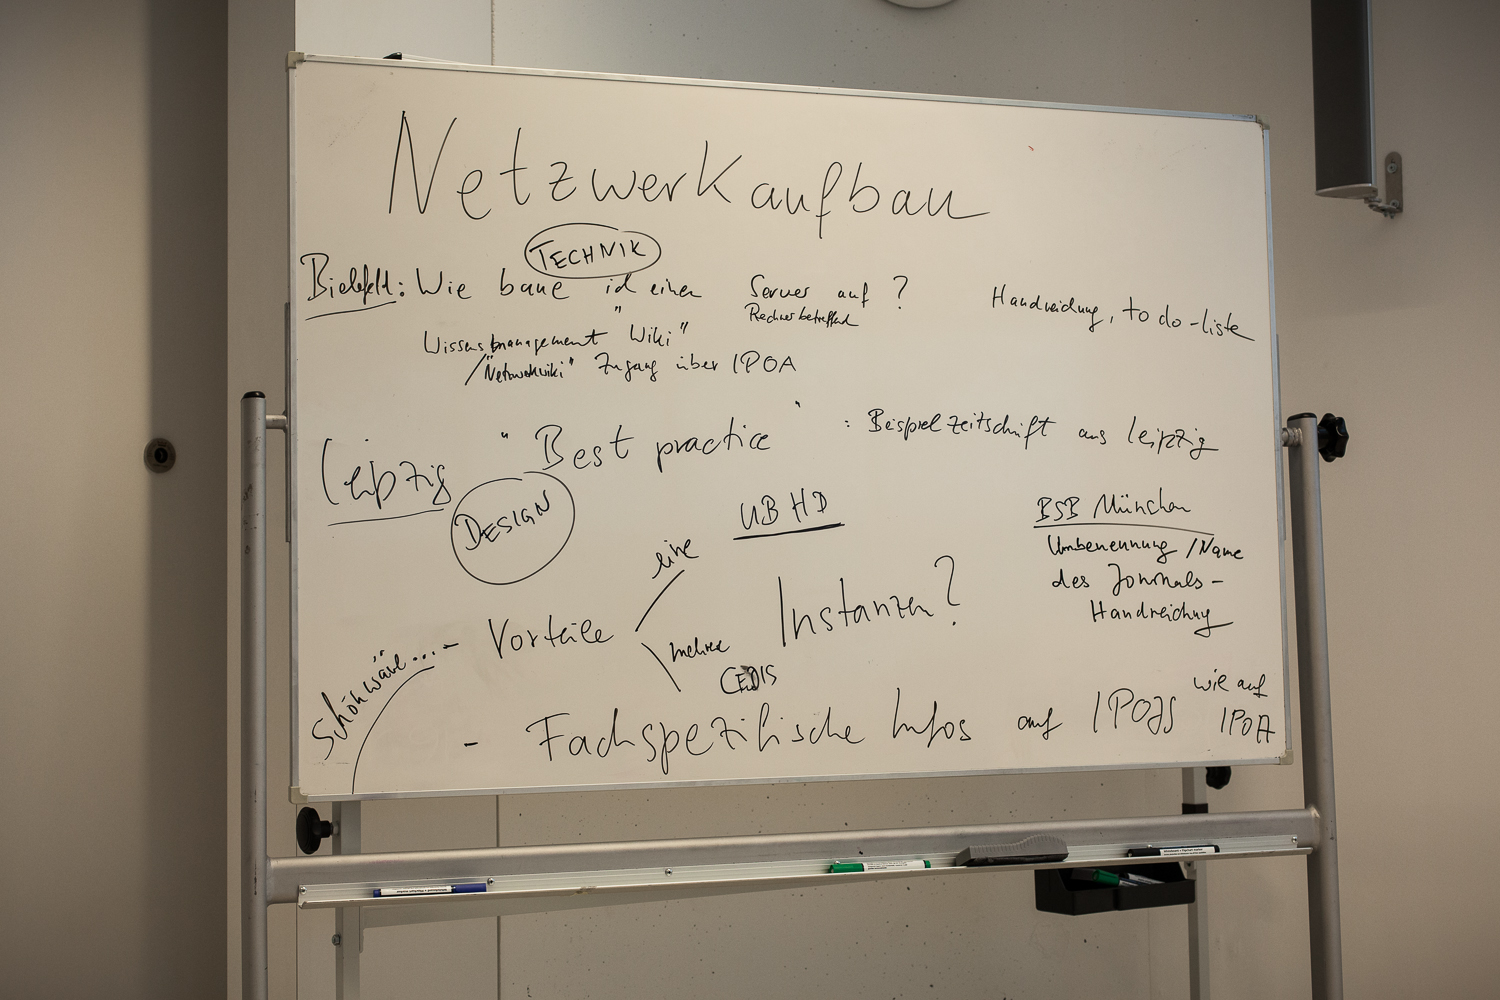 Netzwerkaufbau
TECHNIK
Bielefeld: Wie baue ich einen Server auf?
Rechner betreffend
Handreichung, to do-liste
Wissensmanagement "Wiki"
/"Netzwerkwiki" Zugang über IPOA
Leipzig "Best practice" : Beispielzeitschrift aus Leipzig
DESIGN
UB HD
BSB München
Umbenennung /Name
des Journals-
Handreichung
eine
- Vorteile Instanzen?
mehrere
CEDIS
Schön wär!...
- Fachspezifische Infos auf IPOJS wie auf
IPOA